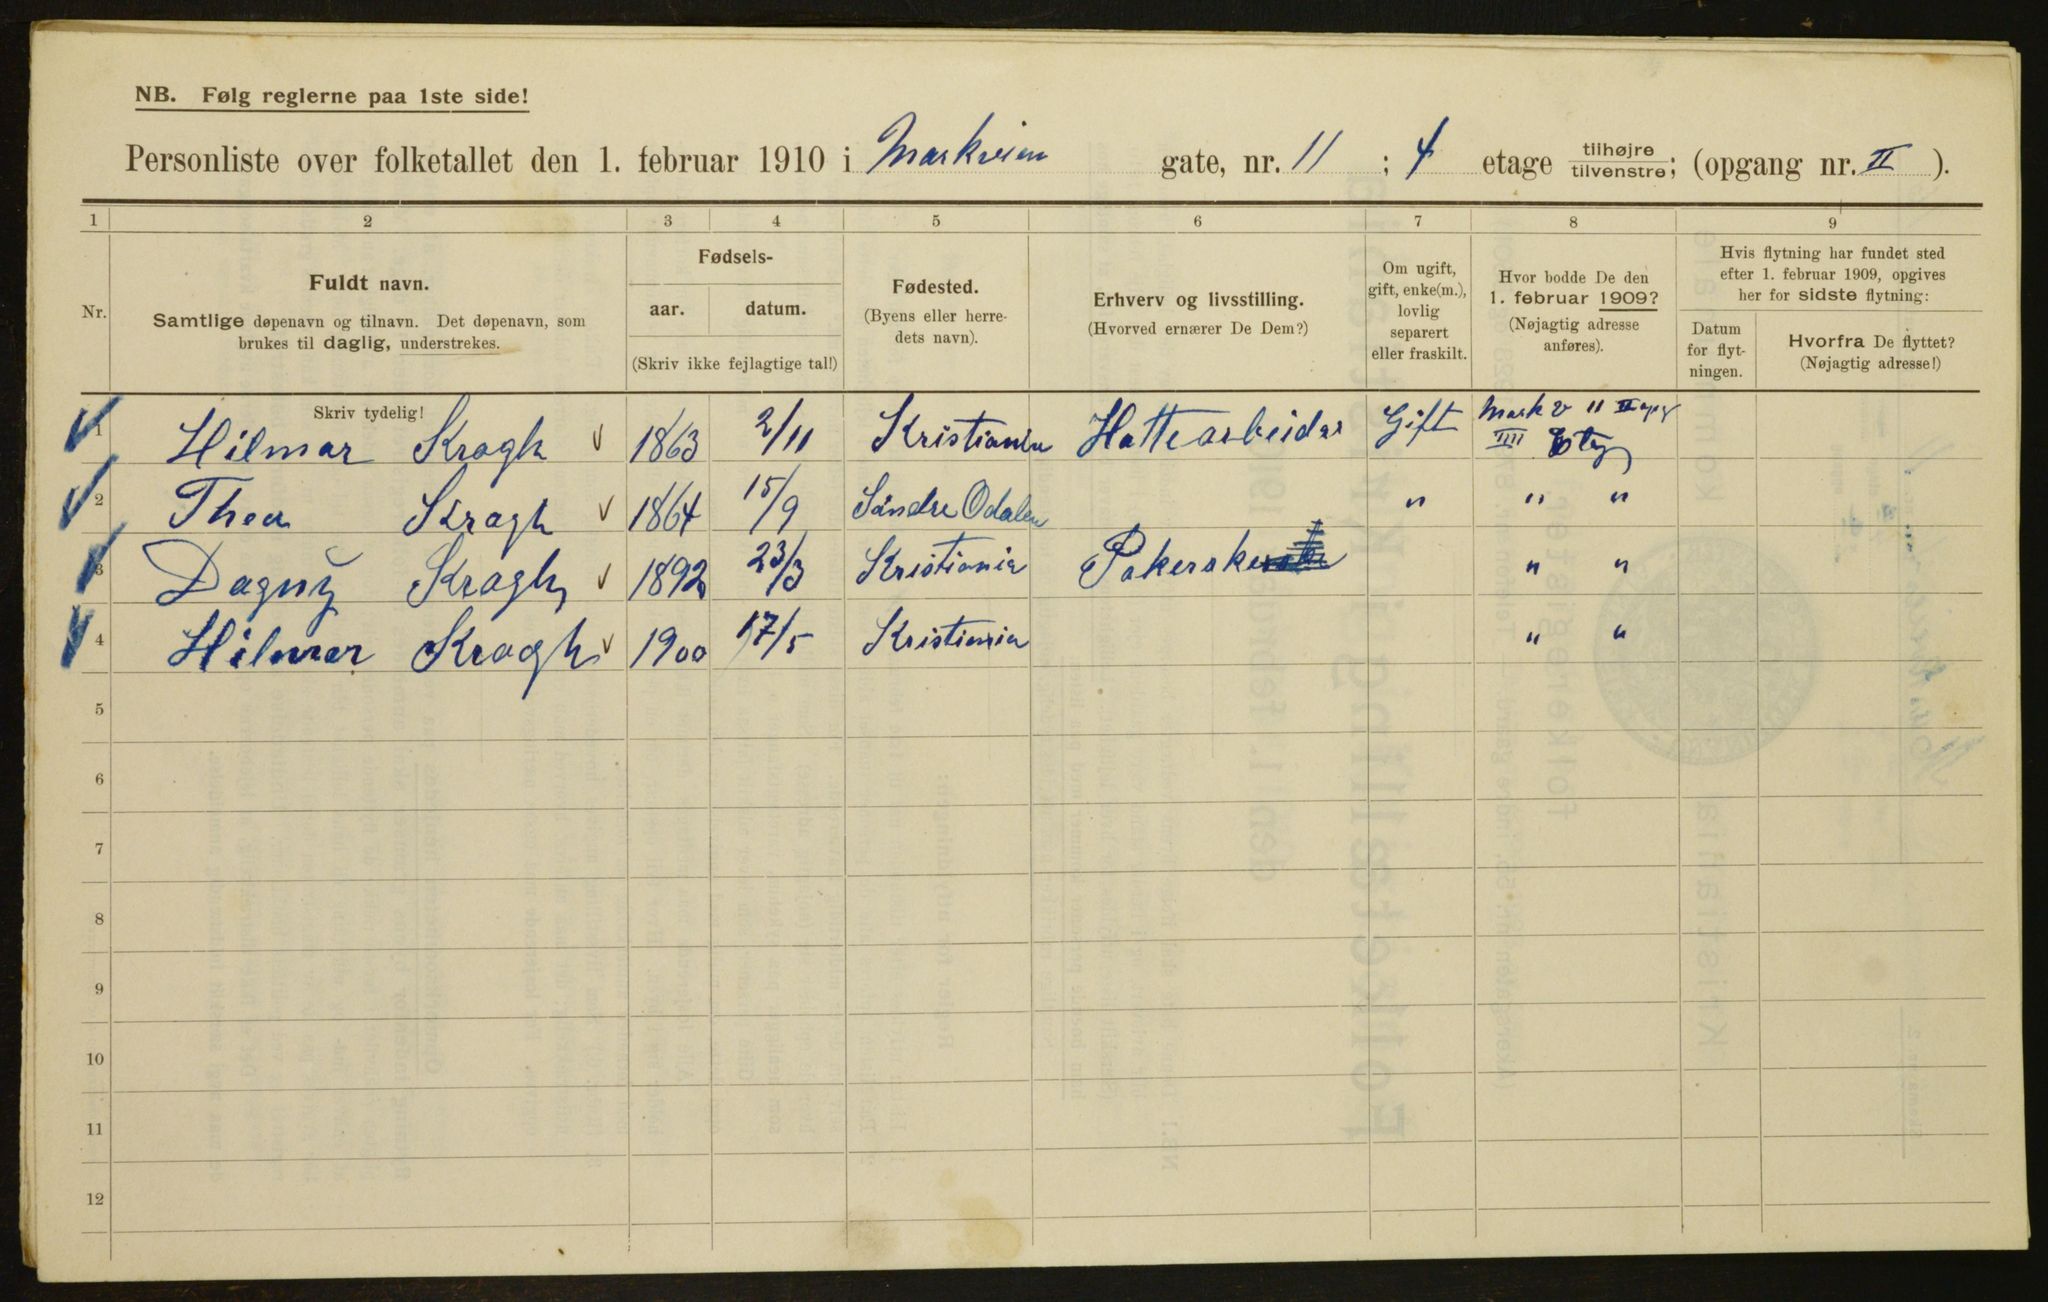 NB. Følg reglerne paa 1ste side!
Personliste over folketallet den 1. februar 1910 i Markveien gate, nr. 11 ; 4 etage tilhøjre tilvenstre; (opgang nr. II ).
1 2 3 4 5 6 7 8 9
Nr.
Fuldt navn.
Samtlige døpenavn og tilnavn. Det døpenavn, som
brukes til daglig, understrekes.
Fødsels-
aar. datum.
(Skriv ikke fejlagtige tal!)
Fødested.
(Byens eller herre-
dets navn).
Erhverv og livsstilling.
(Hvorved ernærer De Dem?)
Om ugift,
gift, enke(m.),
lovlig
separert
eller fraskilt.
Hvor bodde De den
1. februar 1909?
(Nøjagtig adresse
anføres).
Hvis flytning har fundet sted
efter 1. februar 1909, opgives
her for sidste flytning:
Datum
for flyt-
ningen.
Hvorfra De flyttet?
(Nøjagtig adresse!)
Skriv tydelig!
1 Hilmar Krogh 1863 2/11 Kristiania Hattearbeider Gift Mark v 11 II opg
IIII Etag
2 Thea Krogh 1864 15/9 Søndre Odalen " " "
3 Dagny Krogh 1892 23/3 Kristiania Pakerske " "
4 Hilmar Krogh 1900 17/5 Kristiania " "
5
6
7
8
9
10
11
12